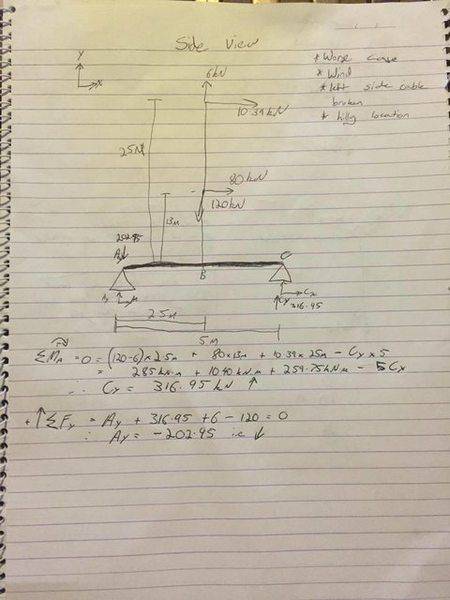 Side View
* Worse case
* Wind
* left side cable
broken
* hilly location
Y
x
6kN
10.39kN
25M
80kN
120kN
13M
202.95
Ay
C
B
Cx
Cy
316.95
2.5m
5M
ΣMA = 0 = (120-6)×2.5m + 80×13m + 10.39×25m - Cy×5
= 285kN.m + 1040kNm + 259.75kNm - 5Cy
∴ Cy = 316.95kN ↑
+↑ΣFy = Ay + 316.95 + 6 - 120 = 0
∴ Ay = -202.95 i.e ↓